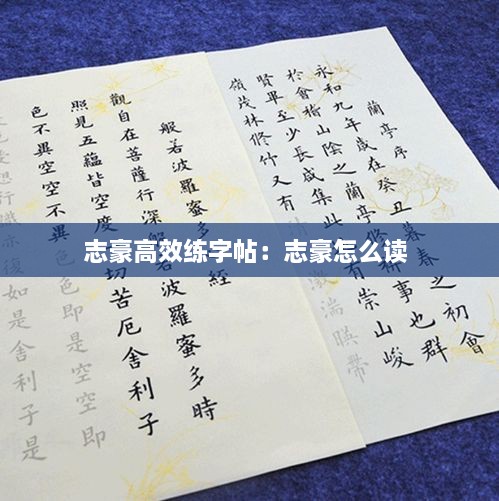 志豪高效练字帖：志豪怎么读
蘭亭序
永和九年歲在癸丑暮春之初會
於會稽山陰之蘭亭修事也群
賢畢至少長咸集此有崇山峻
嶺茂林修竹又有激湍暎帶
般若波羅蜜多經
觀自在菩薩行深般若波羅蜜多時
照見五蘊皆空度切苦厄舍利子
色不異空空不異色色即是空空即
色受想行復如是舍利子是